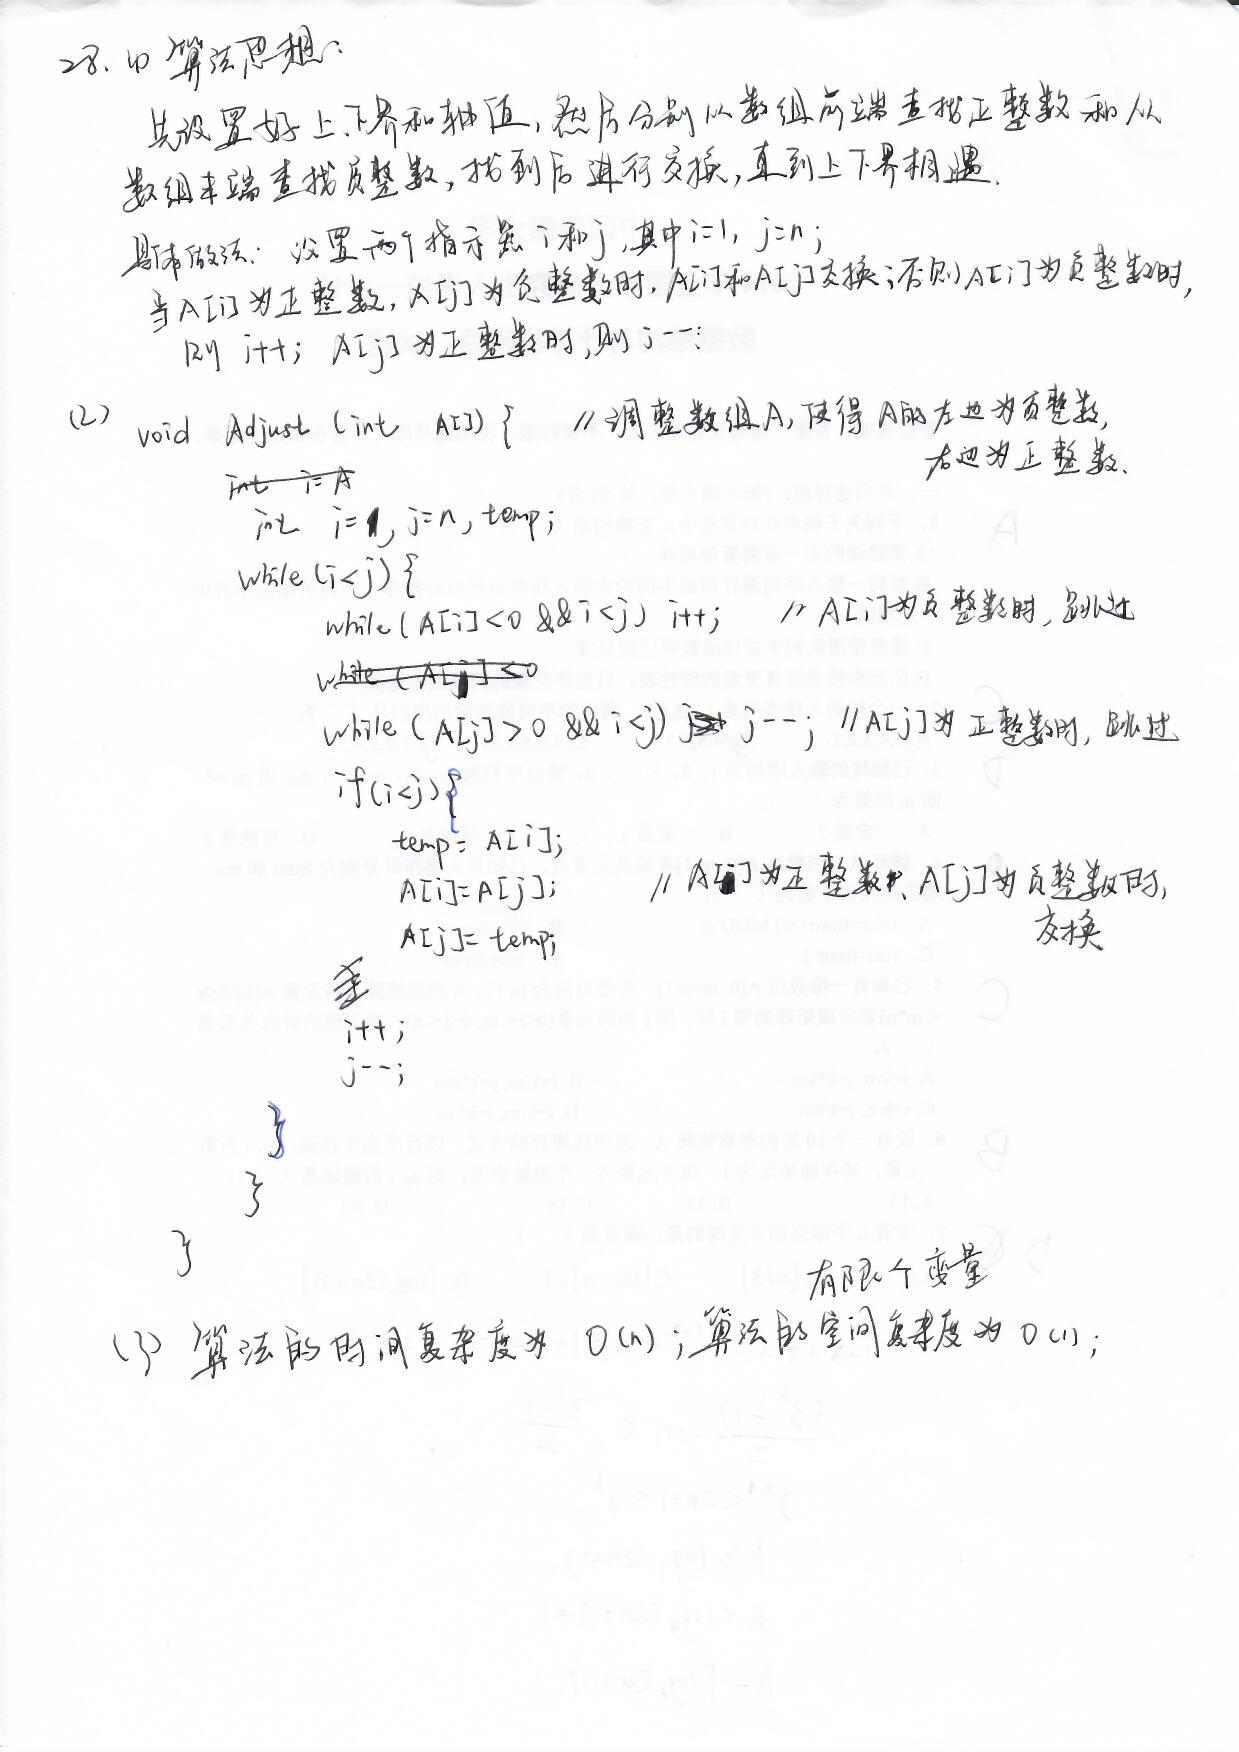 28. (1) 算法思想:
先设置好上、下界和轴值, 然后分别从数组前端查找正整数和从
数组末端查找负整数, 找到后进行交换, 直到上下界相遇.
具体做法: 设置两个指示器 i 和 j, 其中 i=1, j=n;
当A[i]为正整数, A[j]为负整数时, A[i]和A[j]交换; 否则A[i]为负整数时,
则 i++; A[j]为正整数时, 则 j--;
(2) void Adjust (int A[]) { // 调整数组A, 使得A的左边为负整数,
右边为正整数.
int i=A
int i=1, j=n, temp;
while (i<j) {
while (A[i]<0 && i<j) i++; // A[i]为负整数时, 跳过
while (A[j]<0
while (A[j]>0 && i<j) j--; // A[j]为正整数时, 跳过
if (i<j) {
temp = A[i];
A[i]=A[j]; // A[i]为正整数、A[j]为负整数时,
交换
A[j]= temp;
i++;
j--;
}
}
}
有限个变量
(3) 算法的时间复杂度为 O(n); 算法的空间复杂度为 O(1);